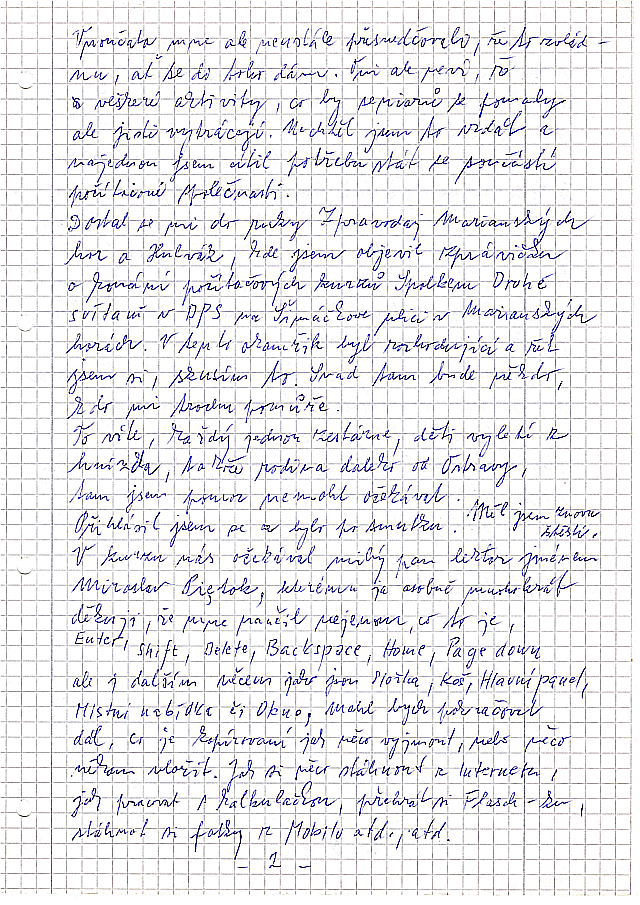 Vnoučata mne ale neustále přesvědčovala, že to zvlád-
nu, ať se do toho dám. Oni ale neví, že
veškeré aktivity, co by seniorů se pomaly
ale jistě vytrácejí. Nechtěl jsem to vzdát a
najednou jsem cítil potřebu stát se součástí
počítačové společnosti.
Dostal se mi do ruky Zpravodaj Marianských
hor a Hulvák, kde jsem objevil zprávičku
o konání počítačových kurzů Spolkem Druhé
svítání v DPS na Šimáčkove ulici v Marianských
horách. V tento okamžik byl rozhodující a řekl
jsem si, zkusím to. Snad tam bude někdo,
kdo mi trochu pomůže.
To víte, každý jednou zestárne, děti vyletí z
hnízda, takže rodina daleko od Ostravy,
tam jsem pomoc nemohl očekávat.
Přihlásil jsem se a bylo po smutku. Měl jsem znovu
štěstí.
V kurzu nás očekával milý pan lektor jménem
Miroslav Piętok, kterému ja osobně mnohokrát
děkuji, že mne naučil nejenom, co to je,
Enter, Shift, Delete, Backspace, Home, Page down
ale i dalším věcem jako jsou Složka, Koš, Hlavní panel,
Místní nabídka či Okno, mohl bych pokračovat
dál, co je kopírovaní jak něco vyjmout, nebo něco
někam vložit. Jak si něco stáhnout z Internetu,
jak pracovat s kalkulačkou, přehrát si Flasch-ku,
stáhnout si fotky z Mobilu atd., atd.
- 2 -